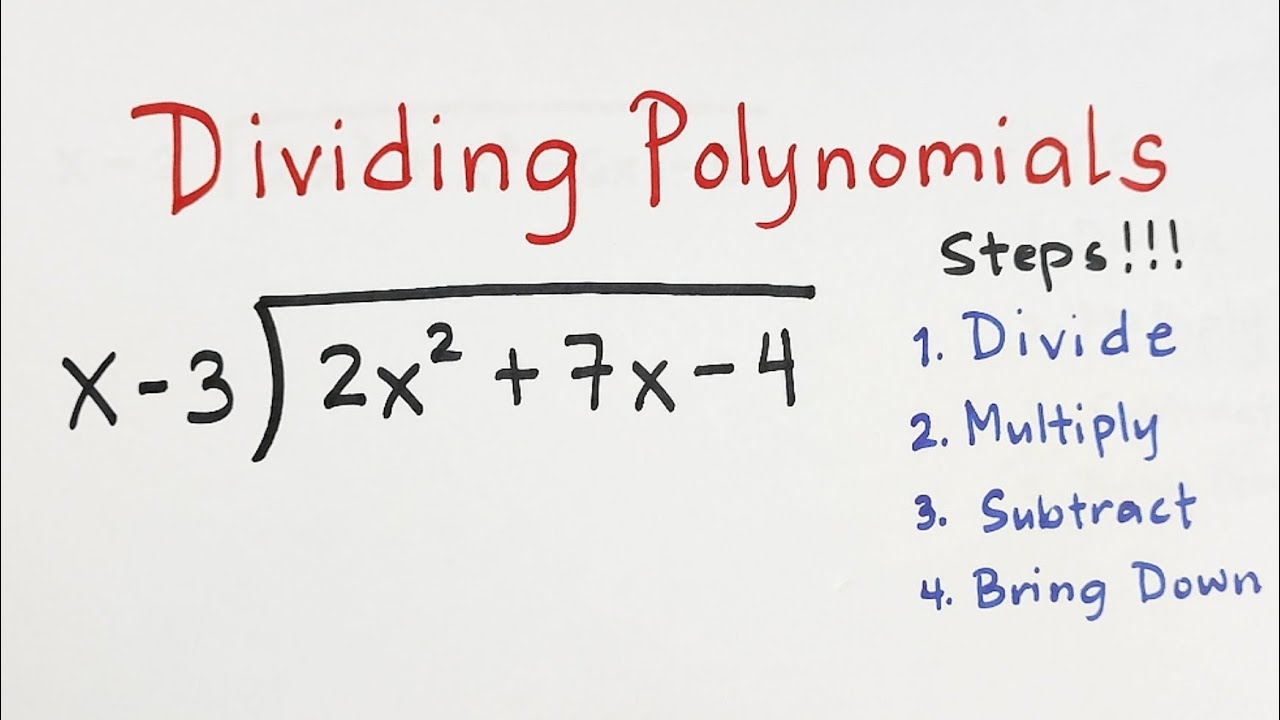 Dividing Polynomials
x - 3 ) 2x² + 7x - 4
Steps!!!
1. Divide
2. Multiply
3. Subtract
4. Bring Down